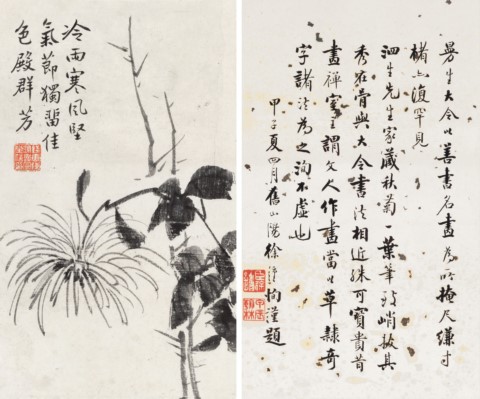 曼生大令以善書名畫為所掩尺縑寸
楮亦復罕見
泗生先生家藏秋菊一葉筆致峭拔其
秀在骨與大令書法相近殊可寶貴昔
畫禪室主謂文人作畫當以草隸奇
字諸法為之洵不虛也
甲子夏四月舊山陽徐恂謹題
冷雨寒風堅
氣節獨畱佳
色殿群芳